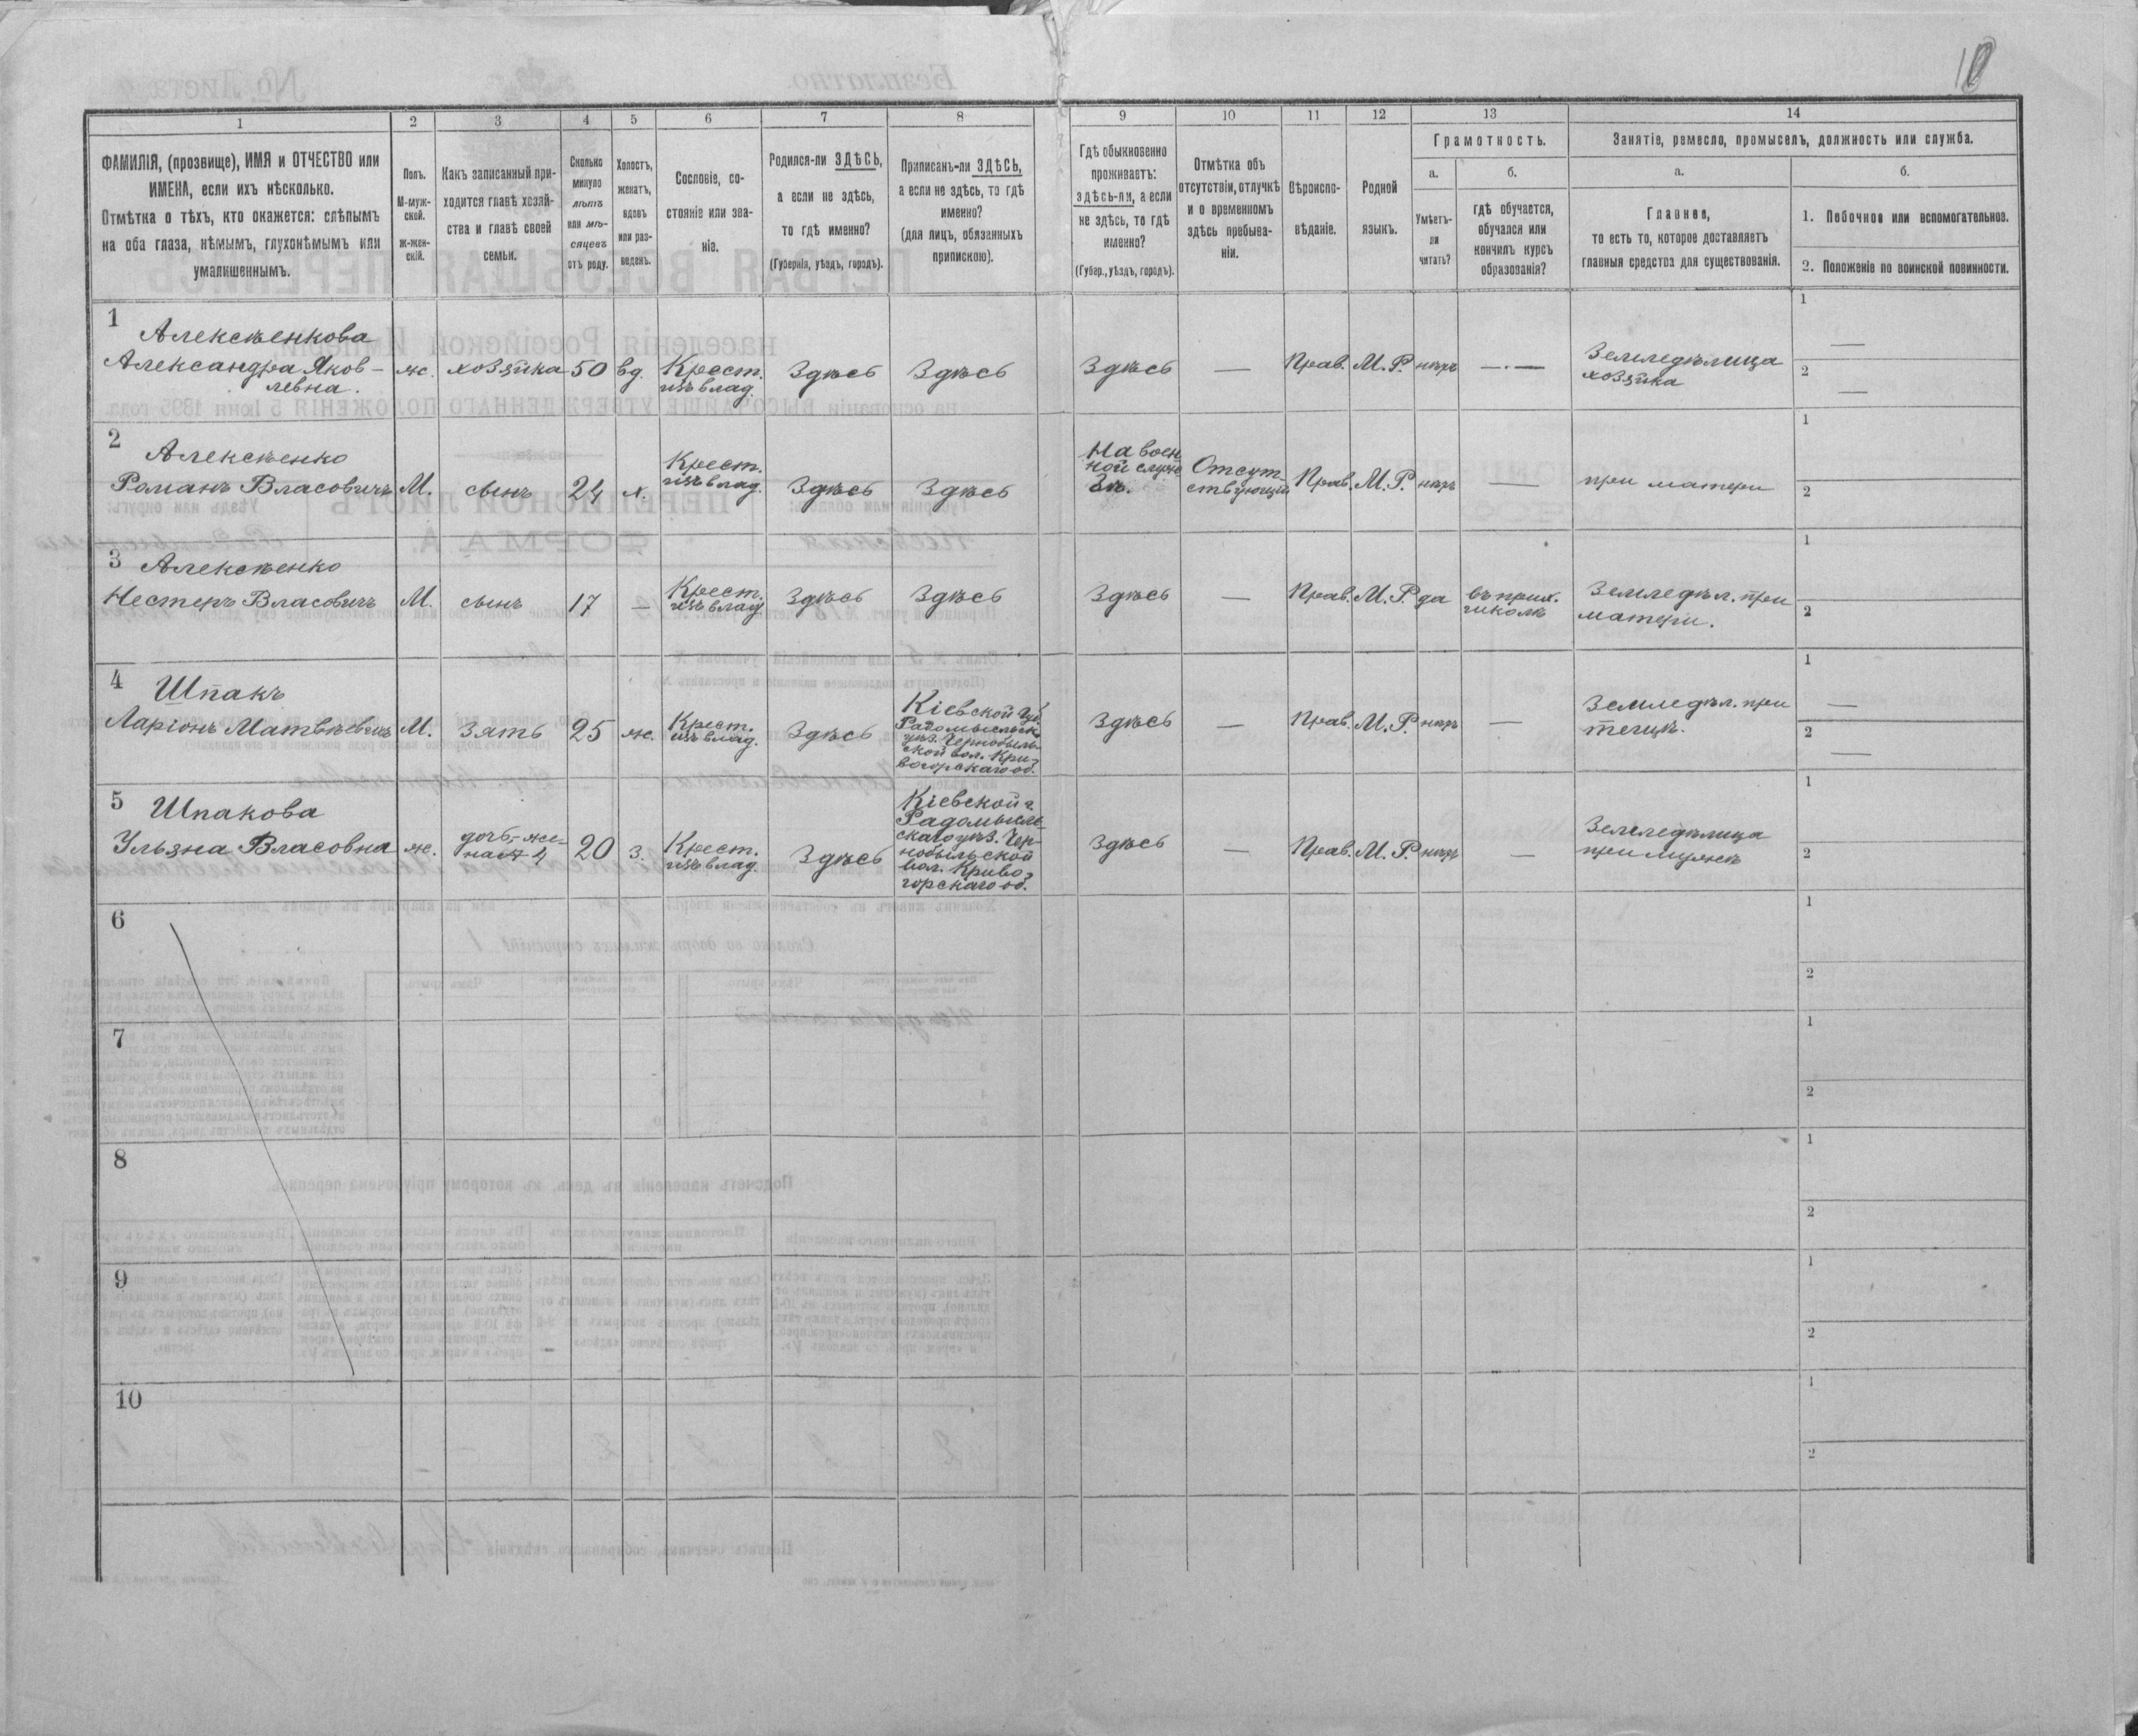 10
1 2 3 4 5 6 7 8 9 10 11 12 13 14
ФАМИЛІЯ, (прозвище), ИМЯ и ОТЧЕСТВО или
ИМЕНА, если ихъ нѣсколько.
Отмѣтка о тѣхъ, кто окажется: слѣпымъ
на оба глаза, нѣмымъ, глухонѣмымъ или
умалишеннымъ.
Полъ.
М-муж-
ской.
ж-жен-
скій.
Какъ записанный при-
ходится главѣ хозяй-
ства и главѣ своей
семьи.
Сколько
минуло
лѣтъ
или мѣ-
сяцевъ
отъ роду.
Холостъ,
женатъ,
вдовъ
или раз-
веденъ.
Сословіе, со-
стояніе или зва-
ніе.
Родился-ли ЗДѢСЬ,
а если не здѣсь,
то гдѣ именно?
(Губернія, уѣздъ, городъ).
Приписанъ-ли ЗДѢСЬ,
а если не здѣсь, то гдѣ
именно?
(для лицъ, обязанныхъ
припискою).
Гдѣ обыкновенно
проживаетъ:
здѣсь-ли, а если
не здѣсь, то гдѣ
именно?
(Губер., уѣздъ, городъ).
Отмѣтка объ
отсутствіи, отлучкѣ
и о временномъ
здѣсь пребыва-
ніи.
Вѣроиспо-
вѣданіе.
Родной
языкъ.
Грамотность.
а.
Умѣетъ-
ли
читать?
б.
гдѣ обучается,
обучался или
кончилъ курсъ
образованія?
Занятіе, ремесло, промыселъ, должность или служба.
а.
Главное,
то есть то, которое доставляетъ
главныя средства для существованія.
б.
1. Побочное или вспомогательное.
2. Положеніе по воинской повинности.
1
Алексѣенкова
Александра Яков-
левна.
ж.
хозяйка
50
вд.
Крест.
изъ влад.
Здѣсь
Здѣсь
Здѣсь
—
Прав.
М.Р.
нѣтъ
—.—
Земледѣлица
хозяйка
1
—
2
—
2
Алексѣенко
Романъ Власовичъ
М.
сынъ
24
х.
Крест.
изъ влад.
Здѣсь
Здѣсь
На воен
ной служ
Отсут-
ствующій
Прав.
М.Р.
нѣтъ
—
при матери
1
2
3
Алексѣенко
Нестеръ Власовичъ
М.
сынъ
17
—
Крест.
изъ влад
Здѣсь
Здѣсь
Здѣсь
—
Прав.
М.Р.
да
въ прих.
школѣ
Земледѣл. при
матери.
1
2
4
Шпакъ
Ларіонъ Матвѣевичъ
М.
Зять
25
ж.
Крест.
изъ влад.
Здѣсь
Кіевской губ.
Радомысльск.
уѣз. Чернобыль-
ской вол. Кри-
вогорскаго об.
Здѣсь
—
Прав.
М.Р.
нѣтъ
—
Земледѣл. при
тещѣ.
1
—
2
—
5
Шпакова
Ульяна Власовна
ж.
дочь, же-
на № 4
20
з.
Крест.
изъ влад.
Здѣсь
Кіевской г.
Радомысль-
скаго уѣз. Чер-
нобыльской
вол. Криво-
горскаго об.
Здѣсь
—
Прав.
М.Р.
нѣтъ
—
Земледѣлица
при мужѣ
1
2
6
1
2
7
1
2
8
1
2
9
1
2
10
1
2